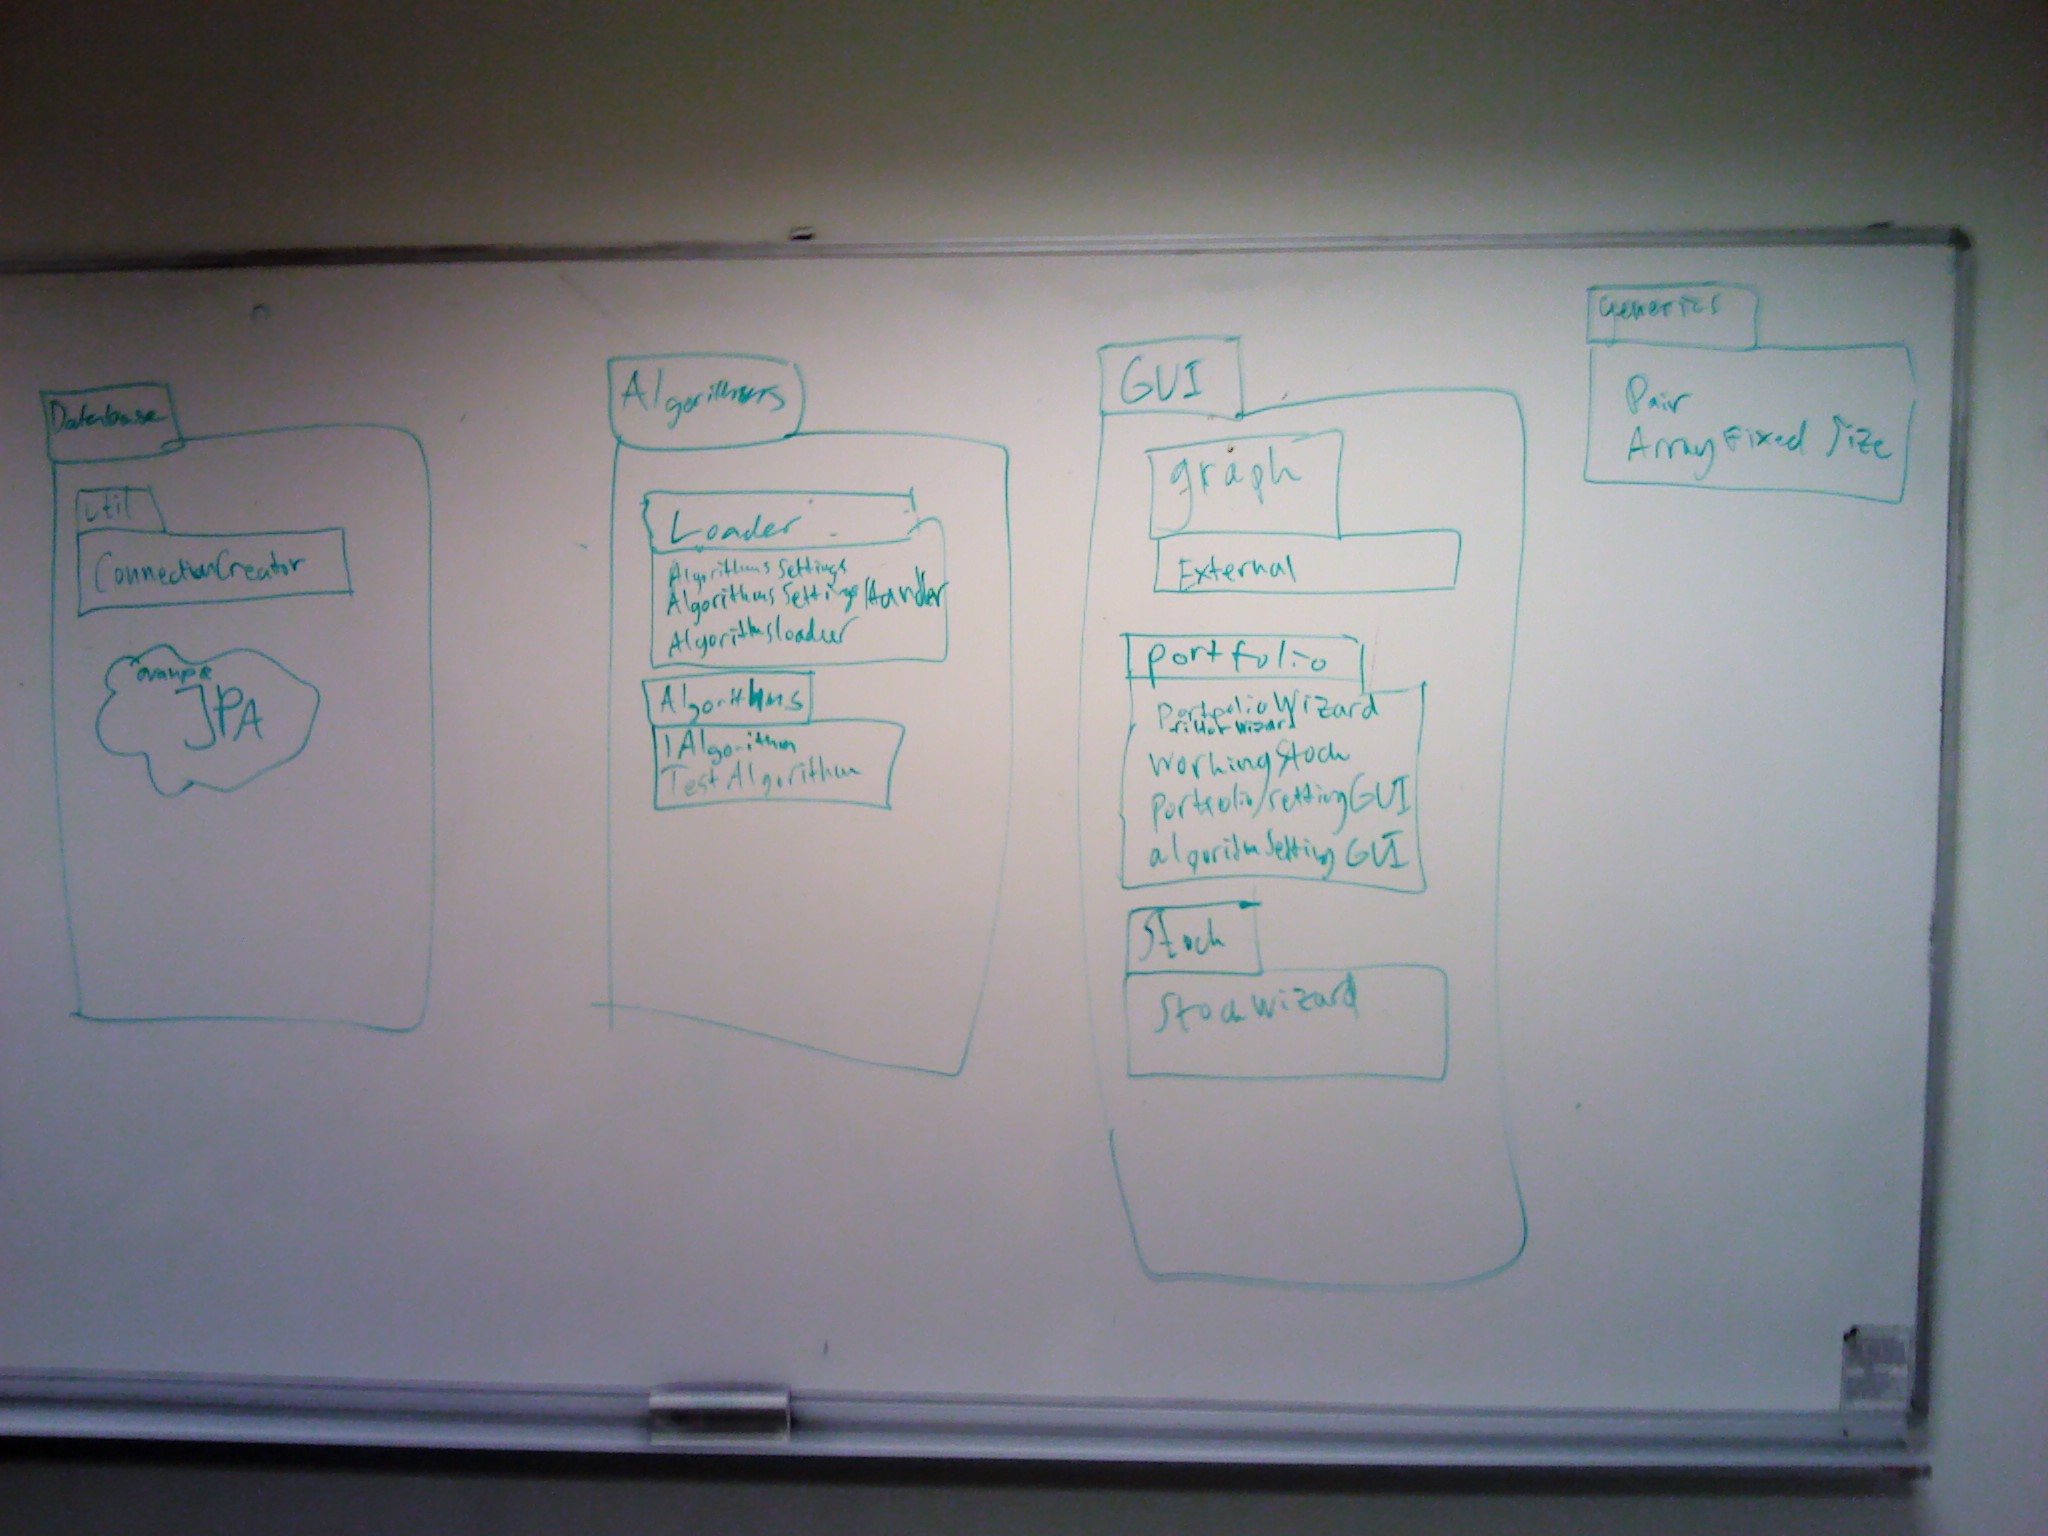 Database
util
ConnectionCreator
JPA
Algorithms
Loader
AlgorithmsSettings
AlgorithmsSettingsHandler
Algorithmsloader
Algorithms
IAlgorithm
TestAlgorithm
GUI
graph
External
portfolio
PortfolioWizard
filterWizard
WorkingStock
portfolio/settingGUI
algoritmSettingGUI
Stock
StockWizard
Generics
Pair
ArrayFixed Size